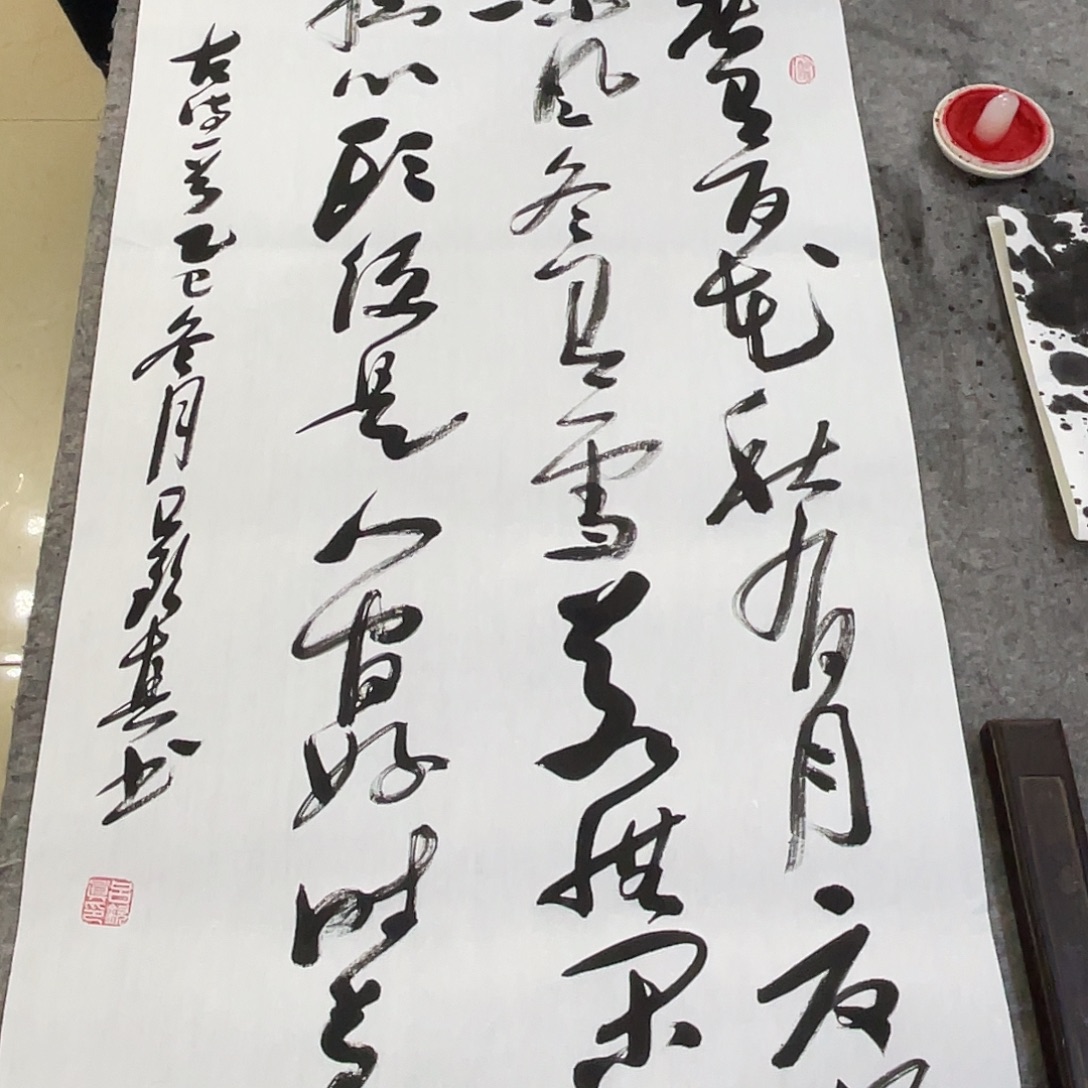 春有百花秋有月夏有
凉风冬有雪若無闲
挂心头便是人间好时节
古诗一首乙巳冬月吕真书